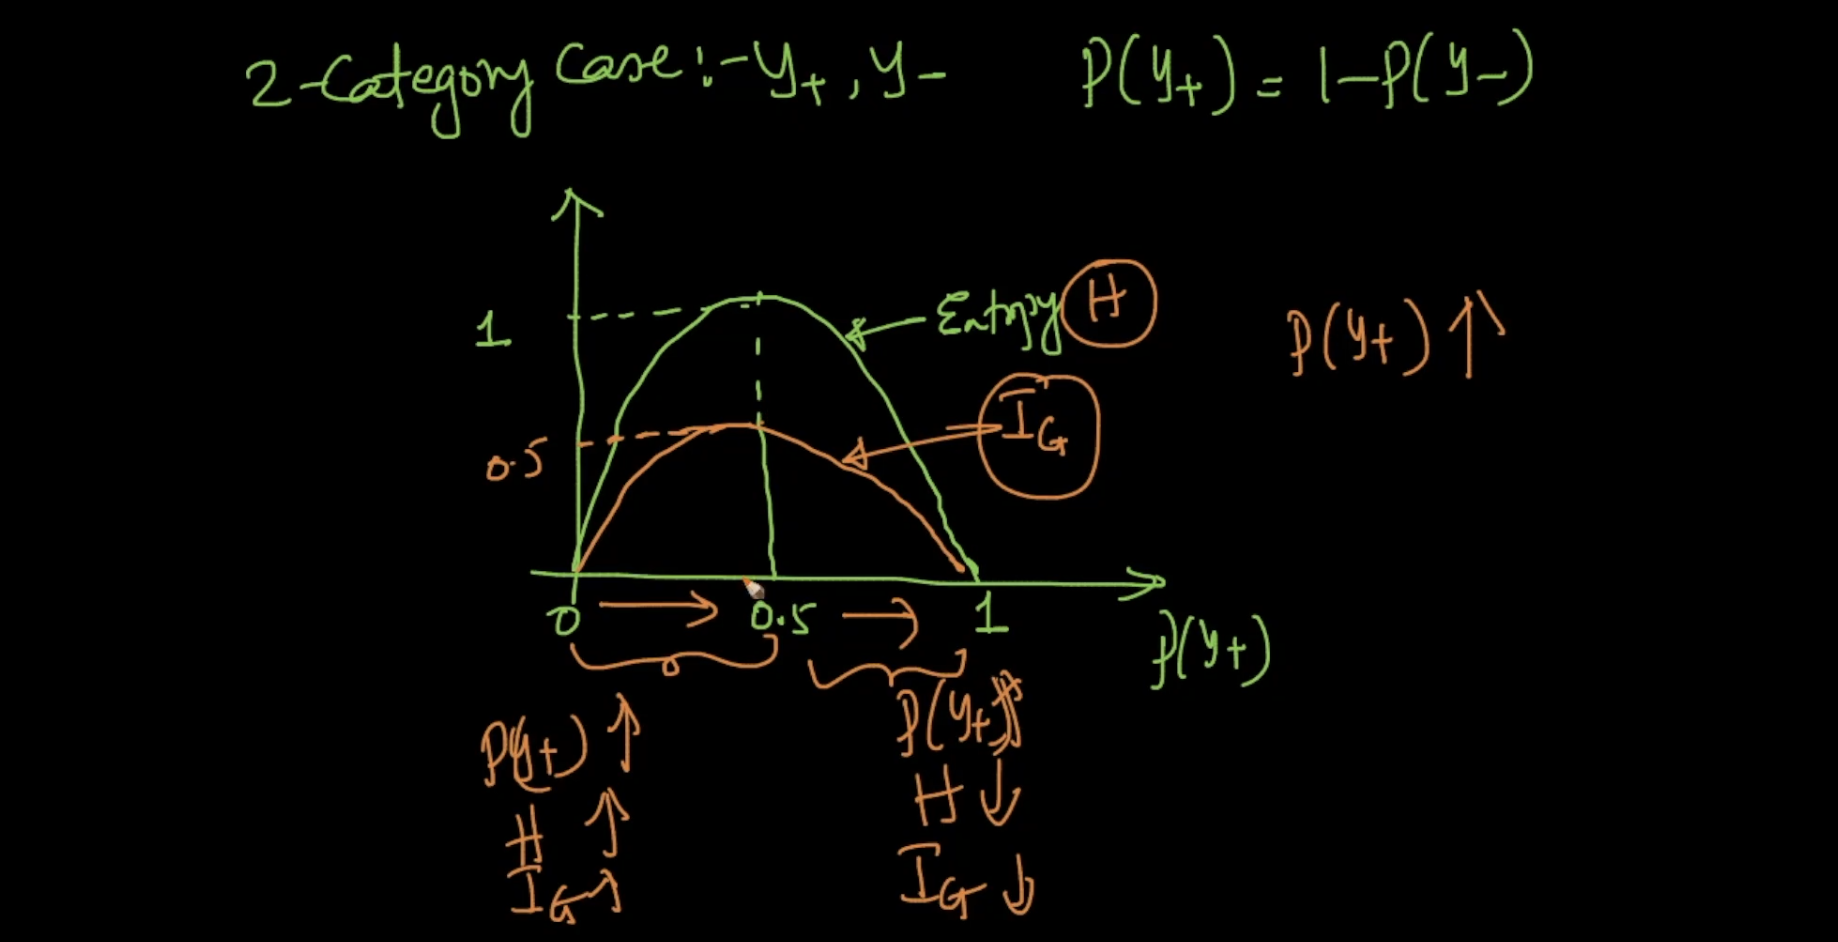 2-Category Case:- y+, y-
P(y+) = 1-P(y-)
1
Entropy H
P(y+) ↑
0.5
IG
0 → 0.5 → 1
P(y+)
P(y+) ↑
H ↑
IG ↑
P(y+)
H ↓
IG ↓